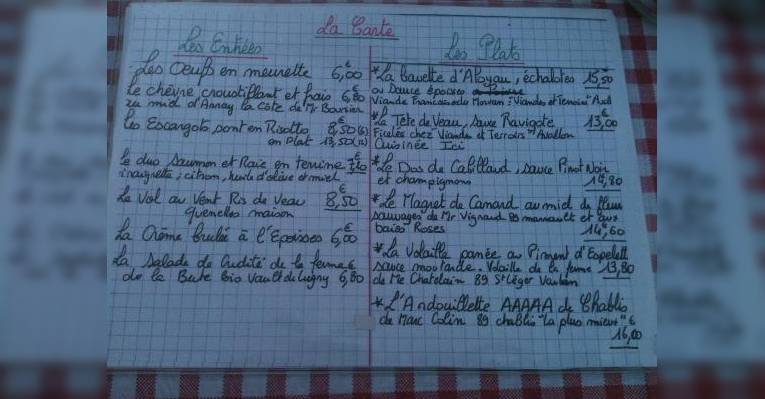 La Carte
Les Entrées
Les Oeufs en meurette 6,00€
Le chèvre croustillant et frais 6,80
au miel d'Annay la Côte de Mr Boursier
Les Escargots, sont en Risotto 8,50 (6)
en Plat 13,50 (12)
Le duo Saumon et Raie en terrine
vinaigrette ; citron, huile d'olive et miel
Le Vol au Vent Ris de Veau 8,50€
quenelles maison
La Crème brulée à l'Epoisses 6,00€
La Salade de Crudité de la ferme €
de la Bute bio Vault de Lugny 6,80
Les Plats
*La bavette d'Aloyau, échalotes 15,50
ou sauce époisses
Viande Francaise du Morvan : Viandes et Terroirs" Avall
*La Tête de Veau, sauce Ravigote 13,00€
Ficelée chez Viandes et Terroirs "Avallon
Cuisinée Ici
*Le Dos de Cabillaud, sauce Pinot Noir
et champignons 14,80
*Le Magret de Canard au miel de fleurs
sauvages de Mr Vignaud 89 et aux
baies Roses 14,60
*La Volaille panée au Piment d'Espelett
sauce moutarde. Volaille de la ferme 13,80
de Me Chatelain 89 St Léger Vauban
*L'Andouillette AAAAA de Chablis
de Marc Colin 89 chablis "la plus mieux" €
16,00